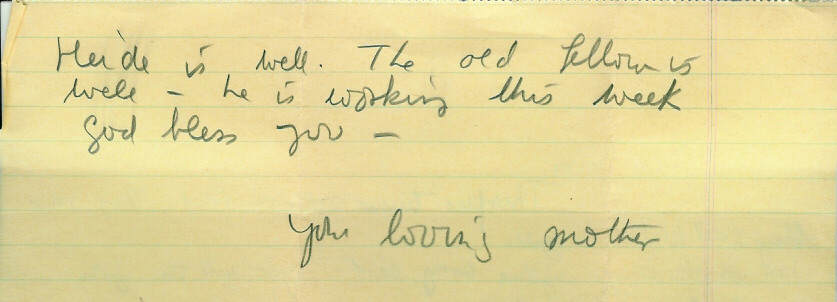 Heide is well. The old fellow is
well - he is working this week
God bless you -
Your loving mother